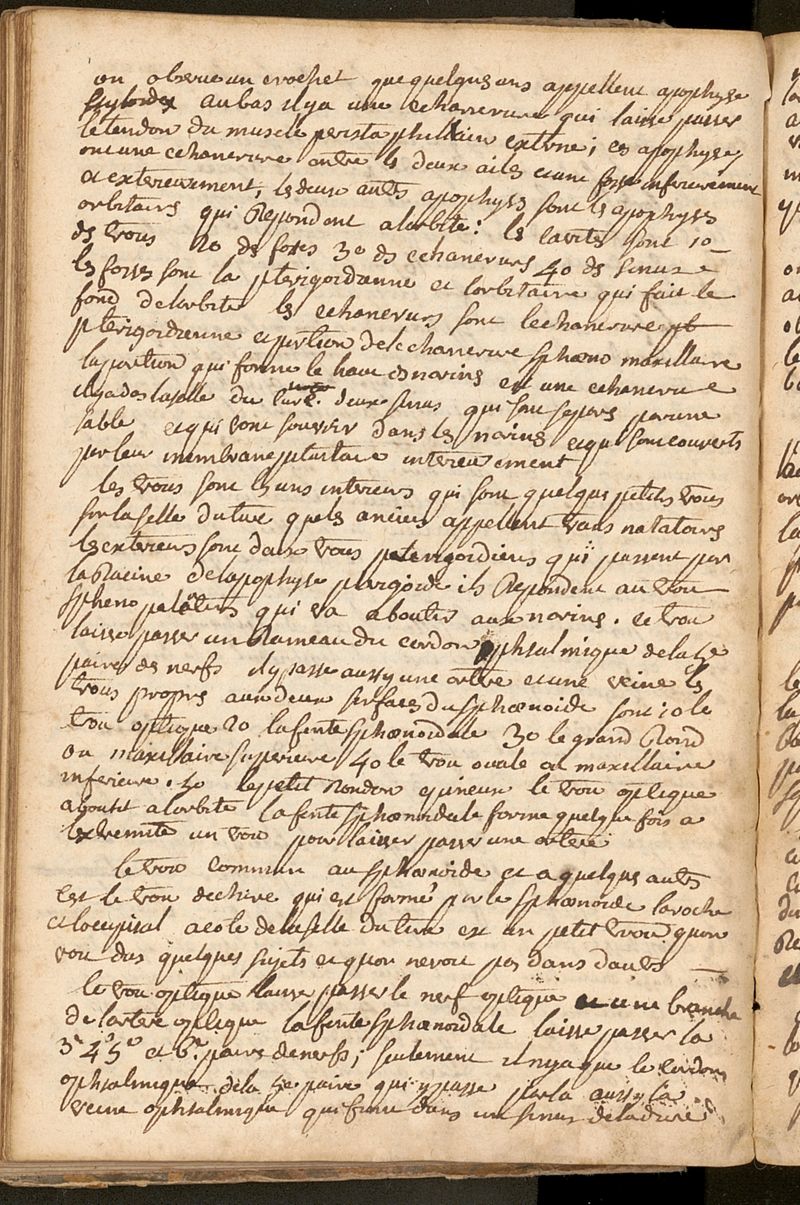 on observe un crochet que quelques uns appellent apophyse
styloide au bas il y a une echancrure qui laisse passer
le tendon du muscle perista phillin externe; ces apophyses
ont une echancrure entre les deux ailes et une fosse inferieurement
et exterieurement, les deux autres apophyses sont les apophyses
orbitaires qui Repondent a lorbite: les cavites sont 1o
des trous 2o des fosses 3o des echancrures 4o des sinus
les fosses sont la pterigoidienne et lorbitaire qui fait le
fond de lorbite les echancrures sont lechancrure
pterigoidienne et portion de lechancrure sphœno maxillaire
la portion qui forme le haut des narines est une echancrure
il y a dos la selle du turc. deux sinus qui sont separes par une
table et qui vont souvrir dans les narines et qui sont couverts
par leur membrane pituitaire interieurement
les trous sont les uns interieurs qui sont quelques petits trous
sur la selle du turc que les anciens appellent trous natatoires
les exterieurs sont deux trous pterigoidiens qui passent par
la Racine de lapophyse pterigoide ils Repondent au trou
spheno palatins qui va aboutir aux narines. ce trou
laisse passer un Rameau du cordon ophtalmique de la 5e
paire des nerfs il y passe aussy une artere et une veine les
trous propres aux deux surfaces du sphœnoide sont 1o le
trou optique 2o la fente sphœnoidalle 3o le grand Rond
ou maxillaire superieure 4o le trou ovale ou maxillaire
inferieure. 5o le petit Rond ou epineux le trou optique
aboutit a lorbite la fente sphœnoidale forme quelque fois a
lextremité un trou pour laisser passer une artere
le trou commun au sphœnoide et a quelques autres
est le trou dechiré qui est formé par le sphœnoide la roche
et loccipital a cote de la selle du turc est un petit trou quon
voit dans quelques sujets et quon ne voit pas dans dautres
le trou optique laisse passer le nerf optique et une branche
de lartere optique la fente sphœnoidale laisse passer la
3e 4e 5e et 6e paires de nerfs; seulement il ny a que le cordon
ophtalmique de la 5e paire qui y passe par la aussy la
veine ophtalmique qui finit dans un sinus de la dure